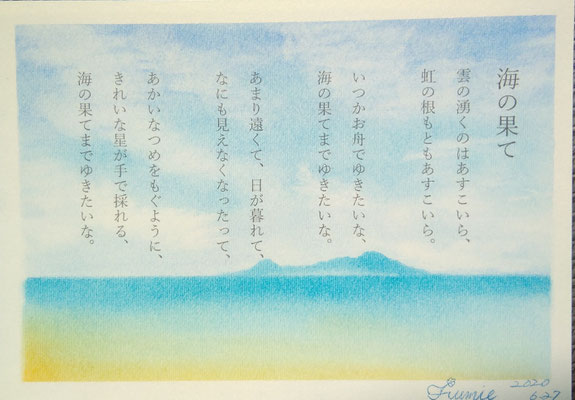 海の果て
雲の湧くのはあすこいら、
虹の根もともあすこいら。
いつかお舟でゆきたいな、
海の果てまでゆきたいな。
あまり遠くて、日が暮れて、
なにも見えなくなったって、
あかいなつめをもぐように、
きれいな星が手で採れる、
海の果てまでゆきたいな。
Fiumie
2020
6.27